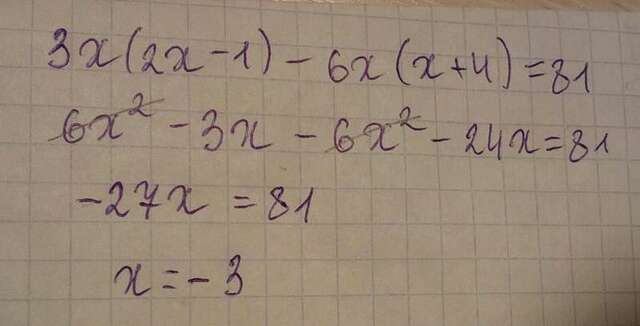 3x(2x-1) - 6x(x+4) = 81
6x² - 3x - 6x² - 24x = 81
-27x = 81
x = -3